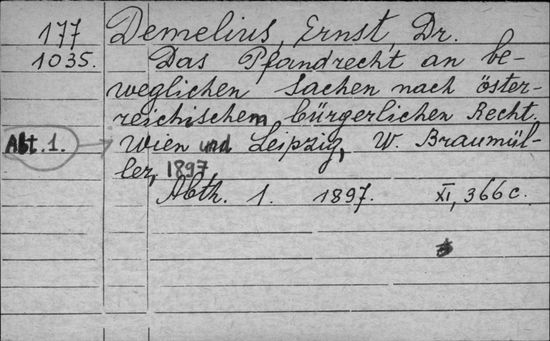 177 Demelius, Ernst, Dr.
1035. Das Pfandrecht an be-
weglichen Sachen nach öster-
reichischem bürgerlichen Recht.
Abt. 1. Wien und Leipzig, W. Braumül-
ler, 1897,
Abth. 1. 1897. XI, 366 c.